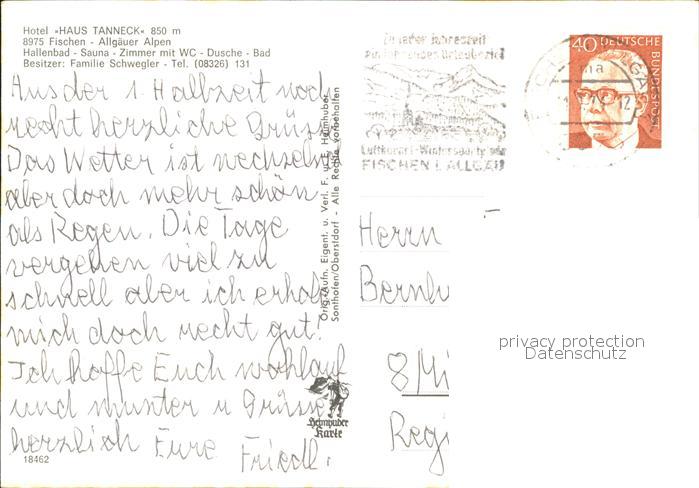 Hotel »HAUS TANNECK« 850 m
8975 Fischen - Allgäuer Alpen
Hallenbad - Sauna - Zimmer mit WC - Dusche - Bad
Besitzer: Familie Schwegler - Tel. (08326) 131
Aus der 1. Halbzeit noch
recht herzliche Grüsse
Das Wetter ist wechselnd
aber doch mehr schön
als Regen. Die Tage
vergehen viel zu
schnell aber ich erhole
mich doch recht gut!
Ich hoffe Euch wohlauf
und munter u Grüsse
herzlich Eure Friedl.
18462
Orig.-Aufn. Eigent. u. Verl. F. u. H. Heimhuber
Sonthofen/Oberstdorf - Alle Rechte vorbehalten
Heimhuber
Karte
Zu jeder Jahreszeit
Luftkurort - Wintersportplatz
FISCHEN I. ALLGÄU
40 DEUTSCHE
BUNDESPOST
Herrn
Bernh
8/Mü
Regi
privacy protection
Datenschutz